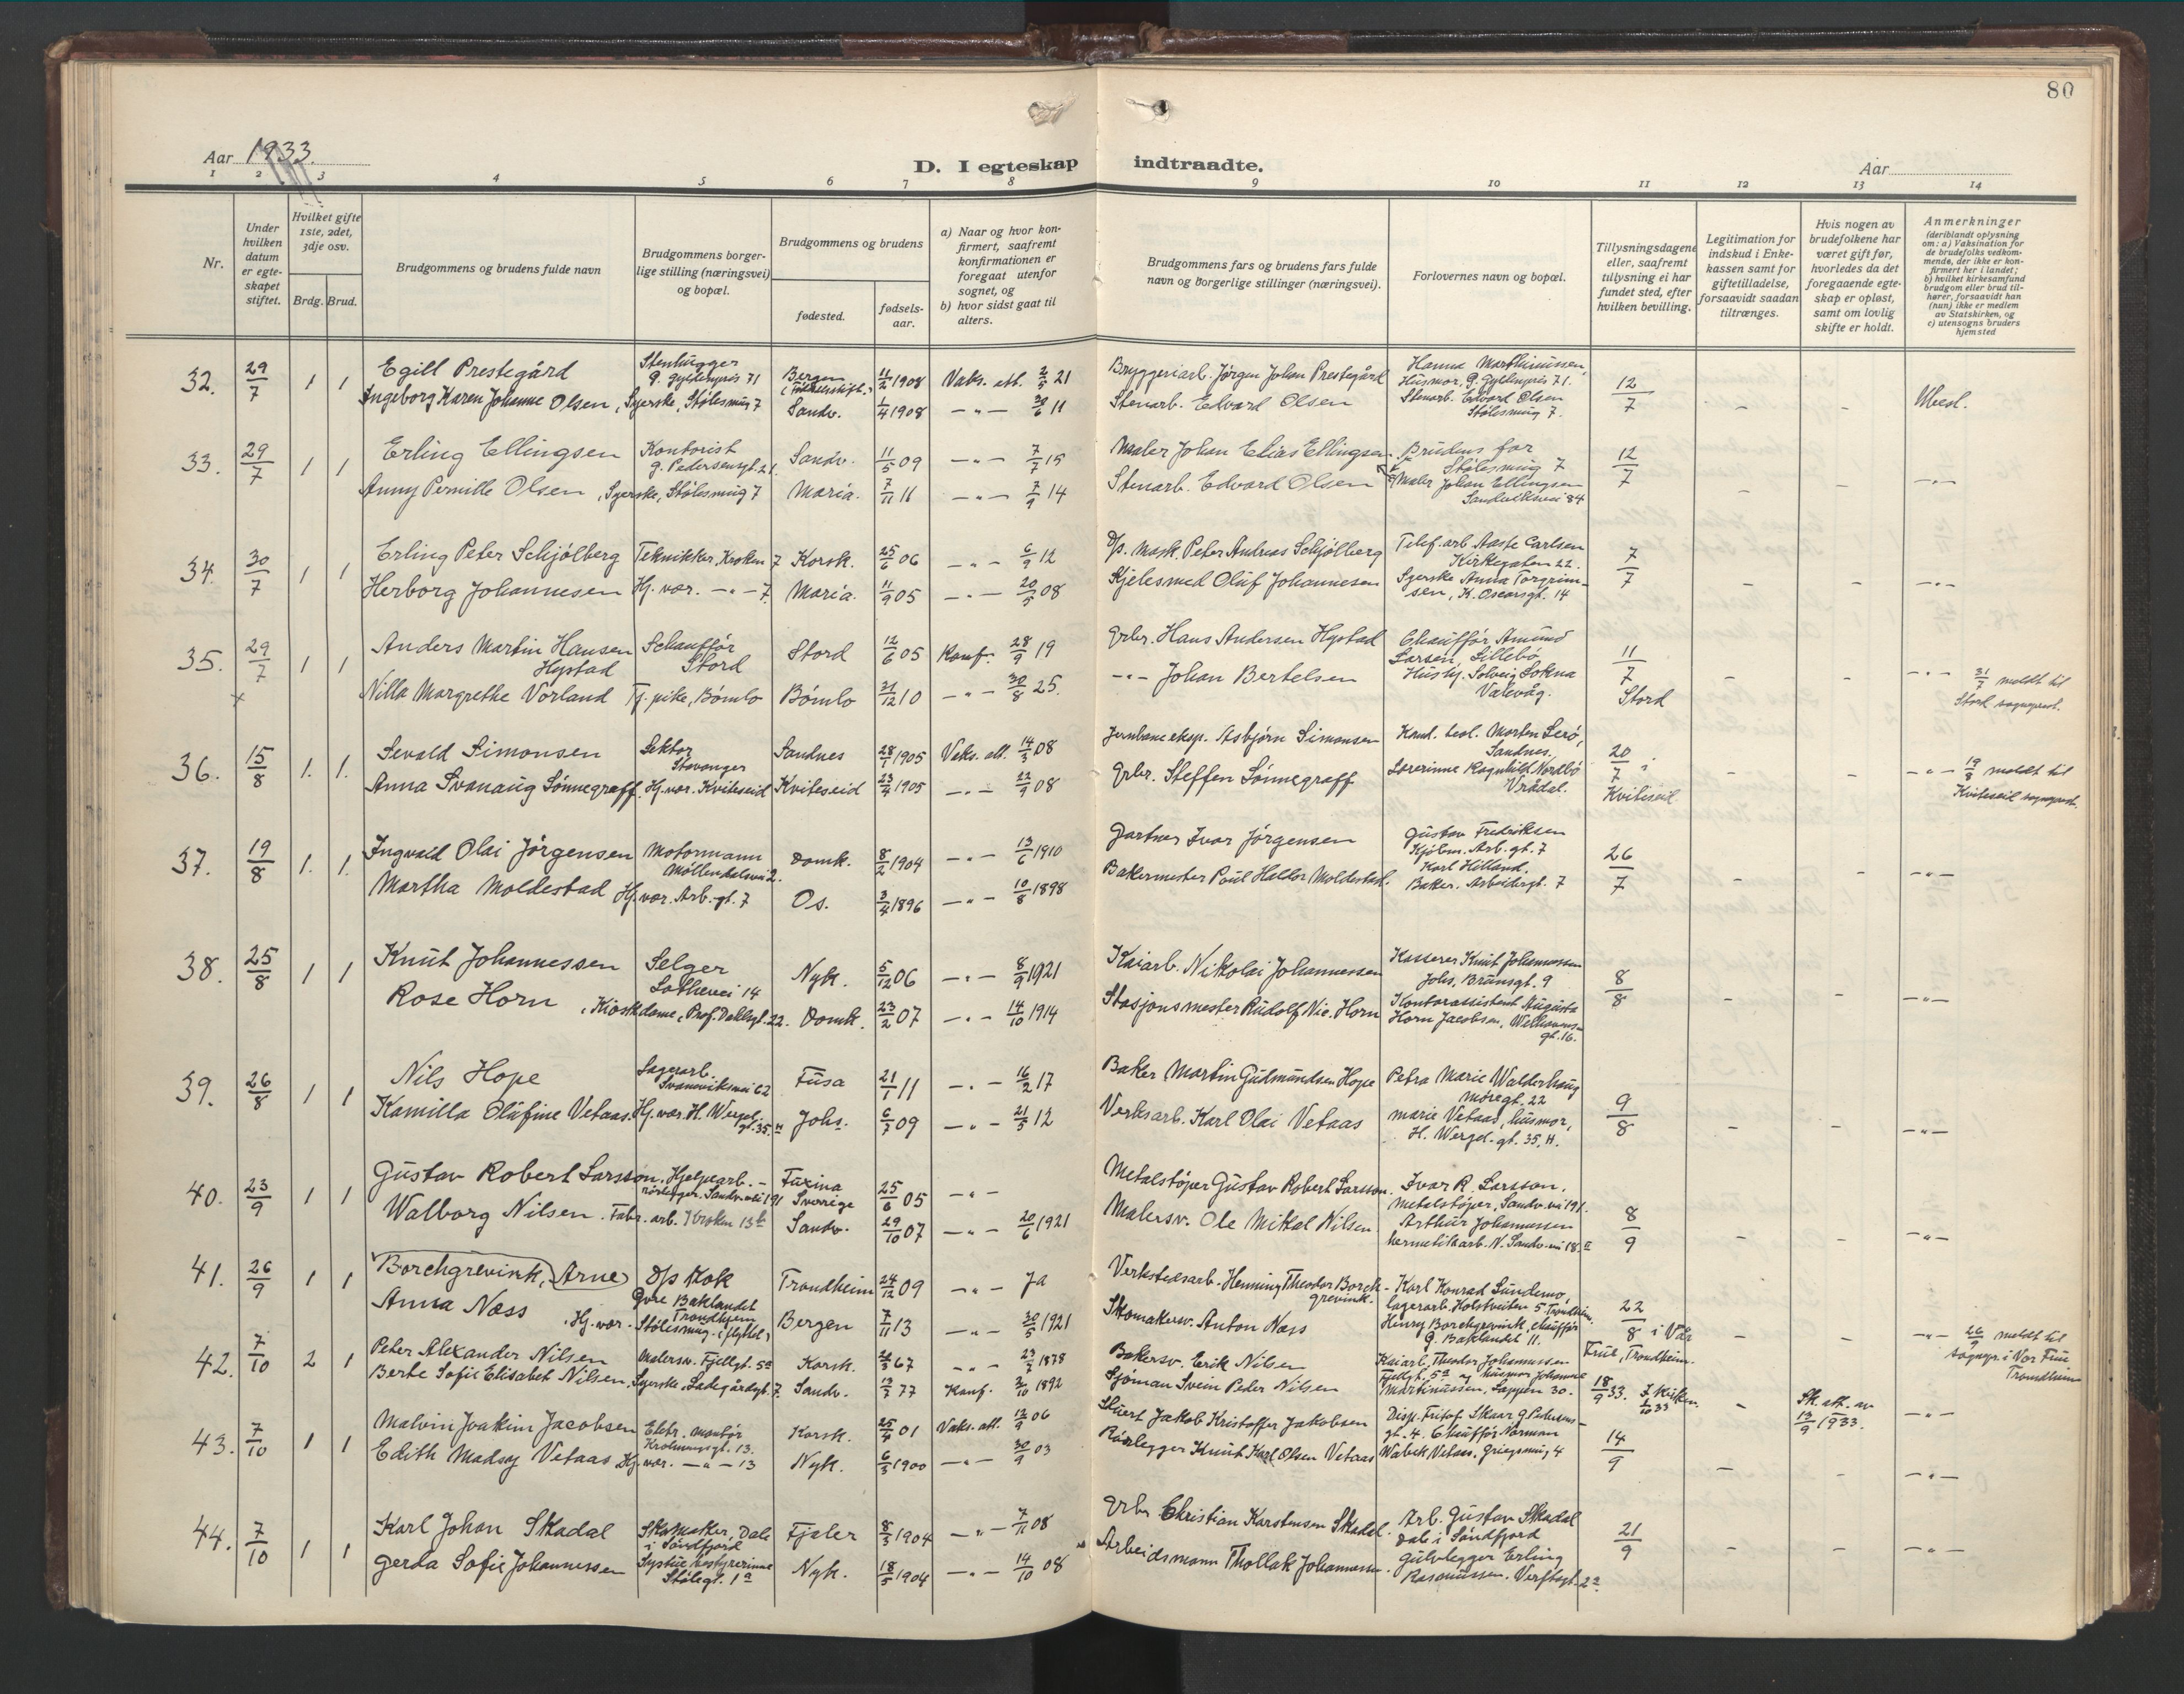 80
Aar 1933.
D. I egteskap indtraadte.
Aar
1 2 3 4 5 6 7 8 9 10 11 12 13 14
Nr.
Under hvilken datum er egteskapet stiftet.
Hvilket gifte 1ste, 2det, 3dje osv.
Brdg. Brud.
Brudgommens og brudens fulde navn
Brudgommens borgerlige stilling (næringsvei) og bopæl.
Brudgommens og brudens
fødested.
fødselsaar.
a) Naar og hvor konfirmert, saafremt konfirmationen er foregaat utenfor sognet, og
b) hvor sidst gaat til alters.
Brudgommens fars og brudens fars fulde navn og borgerlige stillinger (næringsvei).
Forlovernes navn og bopæl.
Tillysningsdagene eller, saafremt tillysning ei har fundet sted, efter hvilken bevilling.
Legitimation for indskud i Enkekassen samt for giftetilladelse, forsaavidt saadan tiltrænges.
Hvis nogen av brudefolkene har været gift før, hvorledes da det foregaaende egteskap er opløst, samt om lovlig skifte er holdt.
Anmerkninger
(deriblandt oplysning om: a) Vaksination for de brudefolks vedkommende, der ikke er konfirmert her i landet; b) hvilket kirkesamfund brudgom eller brud tilhører, forsaavidt han (hun) ikke er medlem av Statskirken, og c) utensogns bruders hjemsted
32. 29/7 1 1 Egill Prestegård Stenhugger G. Gyldenpris 71 Bergen 11/2 1908 Vaks. att. 2/5 21 Bryggeriarb. Jörgen Johan Prestegård Hanna Marthinussen, Husmor, G. Gyldenpris 71. 12/7 - -
Ingeborg Karen Johanne Olsen, Syerske, Stølesmug 7 Sandv. 1/4 1908 -"- 30/6 11 Stenarb. Edvard Olsen Stenarb. Edvard Olsen Stölesmug 7.
33. 29/7 1 1 Erling Ellingsen Kontorist G. Pedersensgt. 21 Sandv. 11/5 09 -"- 7/7 15 Maler Johan Elias Ellingsen Brudens far Stölesmug 7 12/7 - - -"-
Anny Pernille Olsen, Syerske, Stölesmug 7 Maria. 7/11 11 -"- 7/9 14 Stenarb. Edvard Olsen Maler Johan Ellingsen Sandviksvei 84
34. 30/7 1 1 Erling Peter Schjölberg Teknikker, Kroken 7 Korsk. 25/6 06 -"- 6/9 12 D/s. Mask. Peter Andreas Schjölberg Telef.arb Aaste Carlsen Kirkegaten 22. 7/7 - - -"-
Herborg Johannesen Hj. vær. -"- 7. Maria. 11/9 05 -"- 20/5 08 Kjelesmed Oluf Johannesen Syerske Anna Torgrimsen, K. Oscarsgt. 14
35. 29/7 1 1 Anders Martin Hansen Hystad Schauffør Stord Stord 12/6 05 Konf. 28/9 19 Grbr. Hans Andersen Hystad Chauffør Amund Larsen Lillebö 11/7 Stord - - -"- 31/7 meldt til Stord sogneprest.
x Nilla Margrethe Vorland Tj. pike, Bömlo Bömlo 31/12 10 -"- 30/8 25. -"- Johan Bertelsen Hushj. Solveig Sokna Valevåg.
36. 15/8 1. 1. Sevald Simonsen Lektor Stavanger Sandnes 28/1 1905 Vaks. att. 14/3 08 Jernbane eksp. Asbjørn Simonsen Kand. teol. Morten Lerö, Sandnes. 20/7 i Kviteseid - - -"- 19/8 meldt til Kviteseid sogneprest.
Anna Svanaug Sönnegraff, Hj. vær. Kviteseid Kviteseid 23/4 1905 -"- 22/9 08 Grbr. Steffen Sönnegraff Lærerinne Ragnhild Nordbö Vrådal.
37. 19/8 1. 1. Ingvald Olai Jörgensen Motormann Möllendalsvei 2. Domk. 8/2 1904 -"- 13/6 1910 Gartner Ivar Jörgensen Gustav Fredriksen Kjöbm. Arb. gt. 7 26/7 - - -"-
Martha Moldestad Hj. vær. Arb. gt. 7 Os. 3/4 1896 -"- 10/8 1898 Bakermester Poul Halldor Moldestad. Karl Hilland, Baker. Arbeidergt. 7
38. 25/8 1 1 Knut Johannessen Selger Lothevei 14 Nyk. 5/12 06 -"- 8/9 1921 Kaiarb. Nikolai Johannessen Kasserer Knut Johannessen Johs. Brunsgt. 9 8/8 - - -"-
Rose Horn, Kioskdame, Prof. Dahlsgt. 22. Domk. 23/2 07 -"- 14/10 1914 Stasjonsmester Rudolf Nic. Horn Kontorassistent Augusta Horn Jacobsen, Welhavensgt. 16.
39. 26/8 1 1 Nils Hope Lagerarb. Svaneviksvei 62 Fusa 21/1 11 -"- 16/2 17 Baker Martin Gudmundsen Hope Petra Marie Walderhaug Möregt. 22 9/8 - - -"-
Kamilla Olufine Vetaas. Hj. vær. H. Wergel. gt. 35. H Johs. 6/7 09 -"- 21/5 12 Verksarb. Karl Olai Vetaas Marie Vetaas, husmor, H. Wergel. gt. 35. H.
40. 23/9 1 1 Gustav Robert Larsson. Hjelpearb. - rörlegger. Sandv. vei 191 Sverrige 25/6 05 -"- Metalstöper Gustav Robert Larsson. Ivar R. Larsson, Metalstöper, Sandv. vei 191. 8/9 - - -"-
Walborg Nilsen. Fabr. arb. Kroken 13b Sandv. 29/10 07 -"- 20/6 1921 Malersv. Ole Mikal Nilsen Arthur Johannessen hermetikkarb. N. Sandv. vei 18
41. 26/9 1 1 Borchgrevink, Arne D/s Kok Övre Baklandet Trondhjem Trondheim 24/12 09 -"- Ja Verkstedsarb. Henning Theodor Borchgrevink. Karl Konrad Sundemo, lagerarb. Holstveiten 5 Trondhjem. 22/8 i Vår Frue, Trondheim. - - -"- 26/9 meldt til sognepr. i Vor Frue Trondheim
Anna Næss, Hj. vær. Stölesmug. Bergen 7/11 13 -"- 30/5 1921 Skomakersv. Anton Næss Henry Borchgrevink, chauffør Ö. Baklandet 11.
42. 7/10 2 1 Peter Alexander Nilsen Malersv. Fjellgt. 5a Korsk. 67 -"- 23/7 1878 Bakersv. Erik Nilsen Kaiarb. Theodor Johannessen Fjellgt. 5a og husmor Johanne Martinussen, Lappen 30. 18/9 33. 1/10 33 - Sk. att. av 13/9 1933. -"-
Berte Sofie Elisabet Nilsen, Syerske, Ladegårdsgt. 7. Sandv. 13/3 77 Konf. 2/10 1892 Sjöman Svein Peder Nilsen
43. 7/10 1 1 Malvin Joakim Jacobsen Elektr. montör Krohnengt. 13. Korsk. 25/4 01 Vaks. att. 12/9 06 Stuert Jakob Kristoffer Jakobsen Disp. Fritof Skaar G. Pedersensgt. 4. Chauffør Norman 14/9 - - -"-
Edith Madsy Vetaas Hj. vær. -"- 13 Nyk. 6/3 1900 -"- 30/9 03 Rörlegger Knut Karl Olsen Vetaas Vetaas. Griegsmug 4
44. 7/10 1 1 Karl Johan Skadal Skomaker, Dale i Söndfjord Fjaler 8/3 1904 -"- 7/11 08 Grbr. Christian Karstensen Skadal. Arb. Gustav Skadal Dale i Söndfjord 21/9 - - -"-
Gerda Sofie Johannessen Systue bestyrerinne Stölegt. 1a Nyk. 18/5 1904 -"- 14/10 08 Arbeidsmann Thollak Johannessen. Gulvlegger Erling Rasmussen. Verftsgt. 2a.